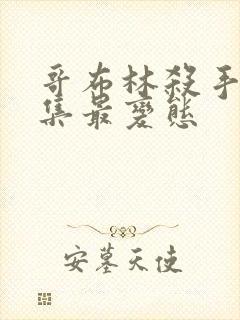 哥布林殺手
集最變態
安墓天使